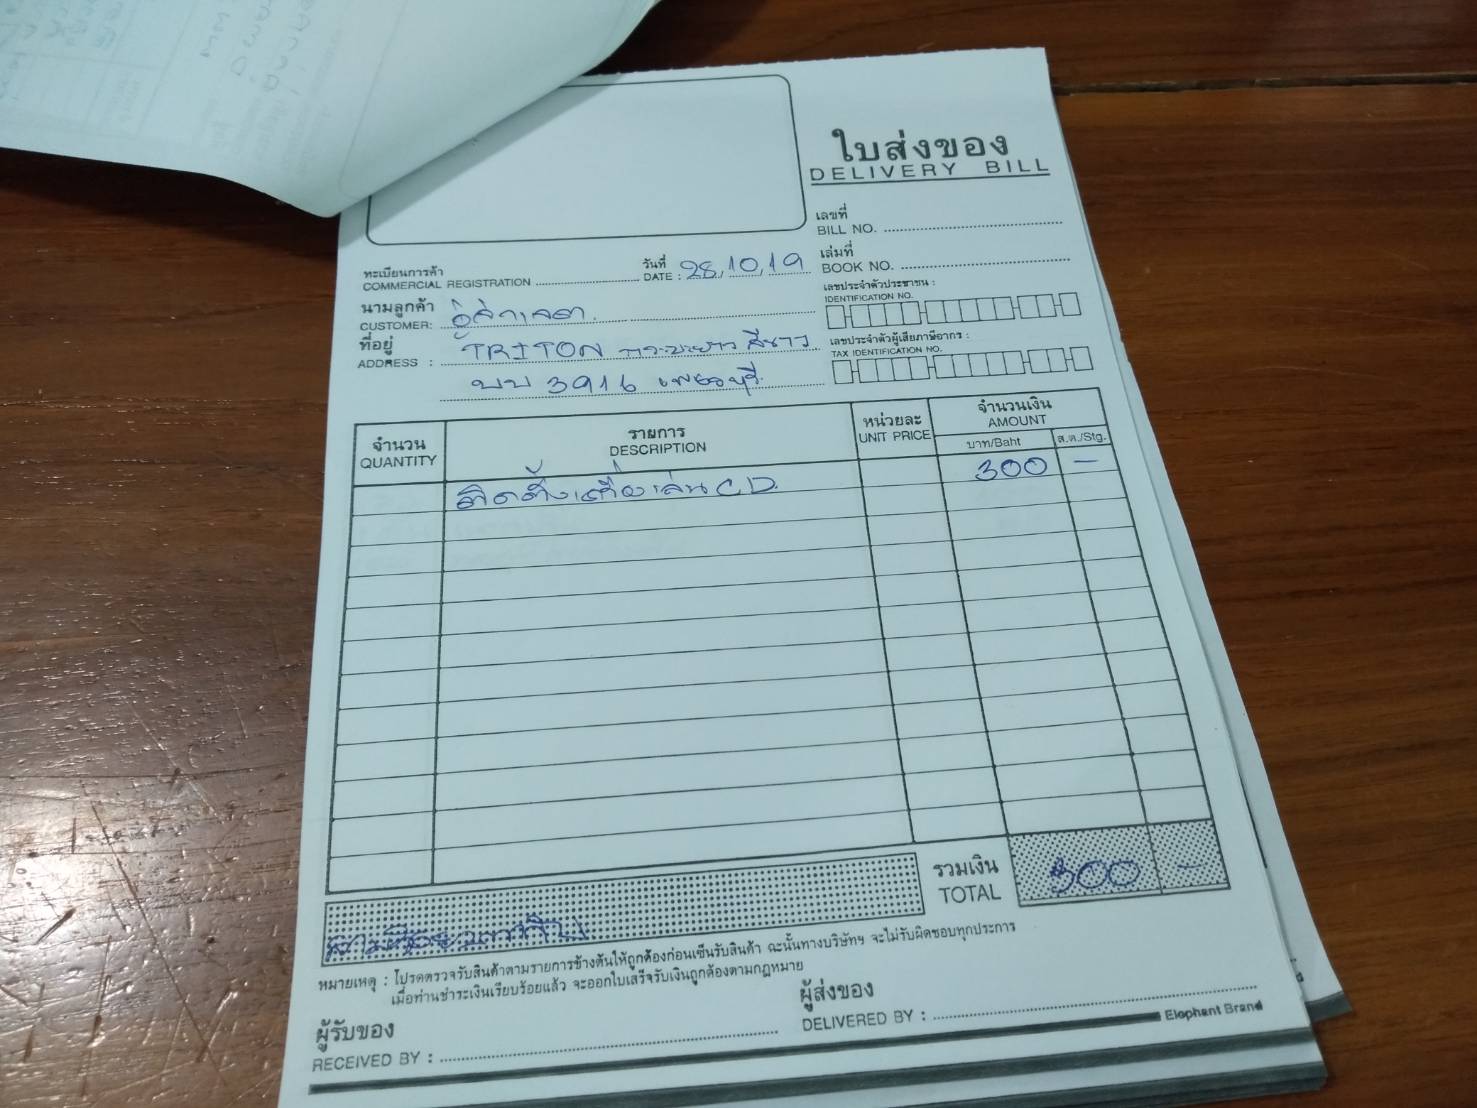 ใบส่งของ
DELIVERY BILL
เลขที่
BILL NO.
เล่มที่
BOOK NO.
ทะเบียนการค้า
COMMERCIAL REGISTRATION
วันที่
DATE : 28,10,19
เลขประจำตัวประชาชน :
IDENTIFICATION NO.
นามลูกค้า
CUSTOMER:
เลขประจำตัวผู้เสียภาษีอากร :
TAX IDENTIFICATION NO.
ที่อยู่
ADDRESS : TRITON กระบะยาว สีขาว
บบ 3916 เพชรบุรี
จำนวน
QUANTITY
รายการ
DESCRIPTION
หน่วยละ
UNIT PRICE
จำนวนเงิน
AMOUNT
บาท/Baht ส.ต./Stg.
ติดตั้งเครื่องเล่น C.D. 300 -
รวมเงิน
TOTAL 300 -
สามร้อยบาทถ้วน
หมายเหตุ : โปรดตรวจรับสินค้าตามรายการข้างต้นให้ถูกต้องก่อนเซ็นรับสินค้า ฉะนั้นทางบริษัทฯ จะไม่รับผิดชอบทุกประการ
เมื่อท่านชำระเงินเรียบร้อยแล้ว จะออกใบเสร็จรับเงินถูกต้องตามกฎหมาย
ผู้รับของ
RECEIVED BY :
ผู้ส่งของ
DELIVERED BY :
Elephant Brand